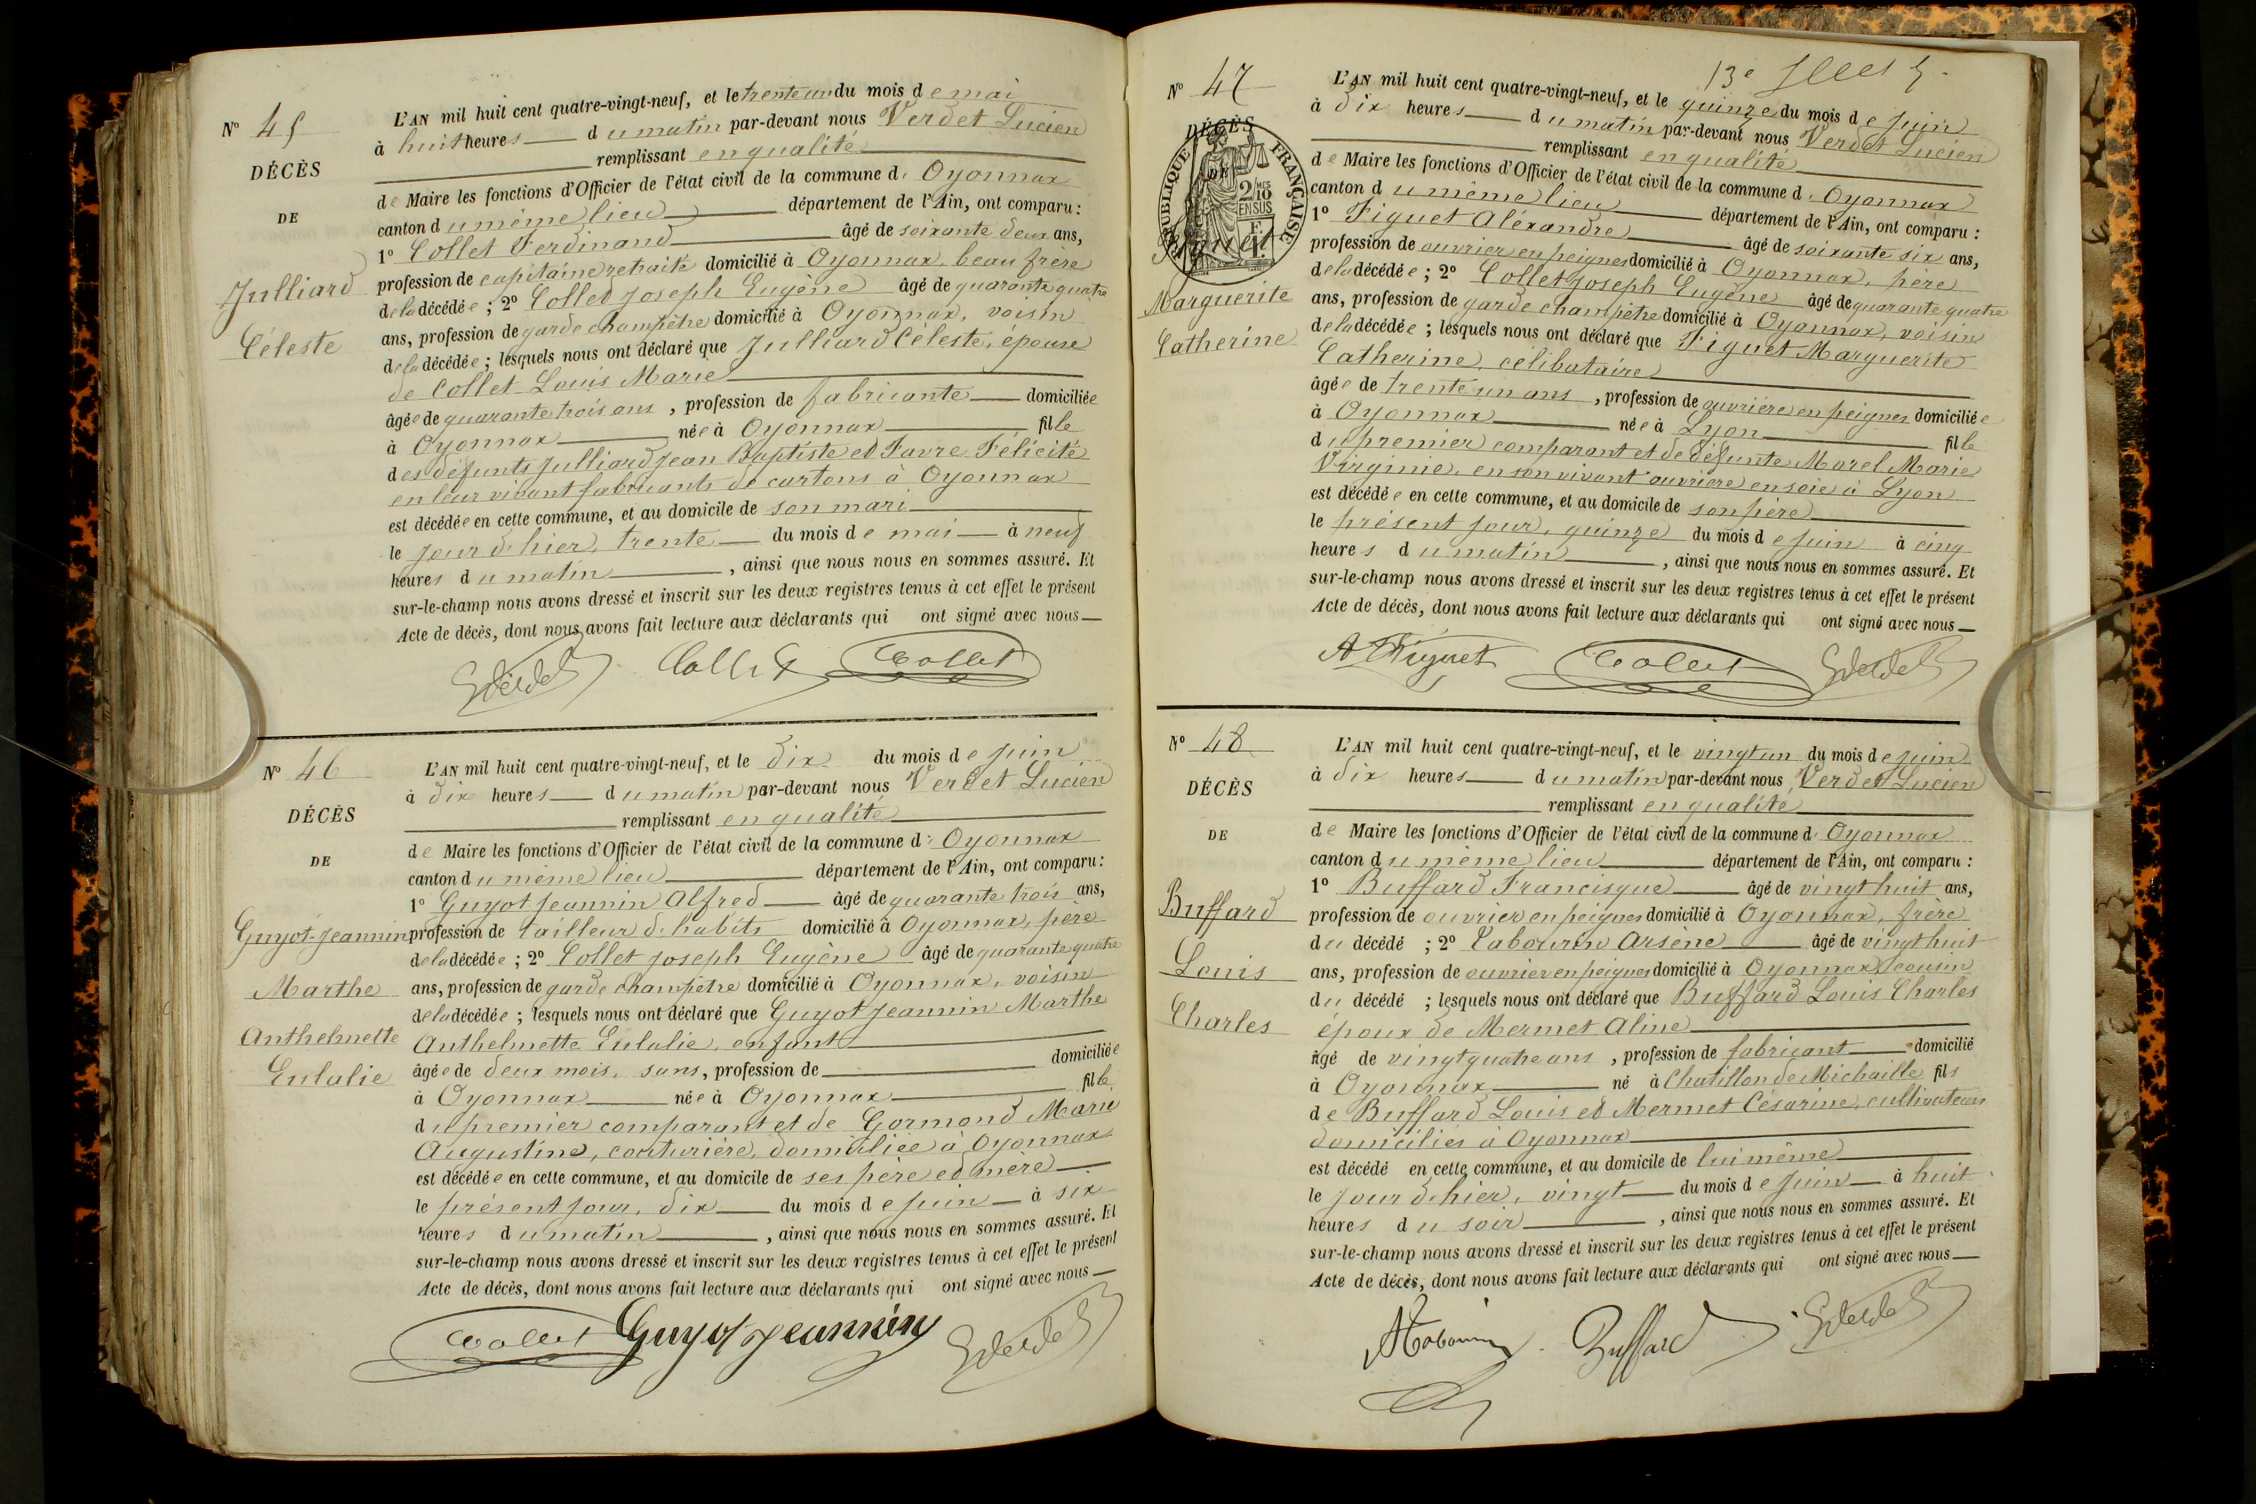 N° 45
DÉCÈS
DE
Julliard
Céleste
L'AN mil huit cent quatre-vingt-neuf, et le trente un du mois de mai
à huit heures du matin par-devant nous Verdet Lucien
remplissant en qualité
de Maire les fonctions d'Officier de l'état civil de la commune d' Oyonnax
canton du même lieu département de l'Ain, ont comparu :
1° Collet Ferdinand âgé de soixante deux ans,
profession de capitaine retraité domicilié à Oyonnax, beau frère
de la décédée ; 2° Collet Joseph Eugène âgé de quarante quatre
ans, profession de garde champêtre domicilié à Oyonnax, voisin
de la décédée ; lesquels nous ont déclaré que Julliard Céleste, épouse
de Collet Louis Marie
âgée de quarante trois ans, profession de fabricante domiciliée
à Oyonnax née à Oyonnax fille
des défunts Julliard Jean Baptiste et Favre Félicité
en leur vivant fabricants de cartons à Oyonnax
est décédée en cette commune, et au domicile de son mari
le jour d'hier, trente du mois de mai à neuf
heures du matin, ainsi que nous nous en sommes assuré. Et
sur-le-champ nous avons dressé et inscrit sur les deux registres tenus à cet effet le présent
Acte de décès, dont nous avons fait lecture aux déclarants qui ont signé avec nous
Verdet Collet Collet
N° 46
DÉCÈS
DE
Guyot-Jeannin
Marthe
Anthelmette
Eulalie
L'AN mil huit cent quatre-vingt-neuf, et le dix du mois de juin
à dix heures du matin par-devant nous Verdet Lucien
remplissant en qualité
de Maire les fonctions d'Officier de l'état civil de la commune d' Oyonnax
canton du même lieu département de l'Ain, ont comparu :
1° Guyot Jeannin Alfred âgé de quarante trois ans,
profession de tailleur d'habits domicilié à Oyonnax, père
de la décédée ; 2° Collet Joseph Eugène âgé de quarante quatre
ans, profession de garde champêtre domicilié à Oyonnax, voisin
de la décédée ; lesquels nous ont déclaré que Guyot Jeannin Marthe
Anthelmette Eulalie, enfant
âgée de deux mois, sans, profession de domiciliée
à Oyonnax née à Oyonnax fille
du premier comparant et de Gormond Marie
Augustine, couturière, domiciliée à Oyonnax
est décédée en cette commune, et au domicile de ses père et mère
le présent jour, dix du mois de juin à six
heures du matin, ainsi que nous nous en sommes assuré. Et
sur-le-champ nous avons dressé et inscrit sur les deux registres tenus à cet effet le présent
Acte de décès, dont nous avons fait lecture aux déclarants qui ont signé avec nous
Collet Guyot Jeannin Verdet
13e
N° 47
DÉCÈS
DE
RÉPUBLIQUE FRANÇAISE
2/10 EN SUS
Figuet
Marguerite
Catherine
L'AN mil huit cent quatre-vingt-neuf, et le quinze du mois de juin
à dix heures du matin par-devant nous Verdet Lucien
remplissant en qualité
de Maire les fonctions d'Officier de l'état civil de la commune d' Oyonnax
canton du même lieu département de l'Ain, ont comparu :
1° Figuet Aléxandre âgé de soixante six ans,
profession de ouvrier en peignes domicilié à Oyonnax, père
de la décédée ; 2° Collet Joseph Eugène âgé de quarante quatre
ans, profession de garde champêtre domicilié à Oyonnax, voisin
de la décédée ; lesquels nous ont déclaré que Figuet Marguerite
Catherine, célibataire
âgée de trente un ans, profession de ouvrière en peignes domiciliée
à Oyonnax née à Lyon fille
du premier comparant et de défunte Morel Marie
Virginie, en son vivant ouvrière en soie à Lyon
est décédée en cette commune, et au domicile de son père
le présent jour, quinze du mois de juin à cinq
heures du matin, ainsi que nous nous en sommes assuré. Et
sur-le-champ nous avons dressé et inscrit sur les deux registres tenus à cet effet le présent
Acte de décès, dont nous avons fait lecture aux déclarants qui ont signé avec nous
A Figuet Collet Verdet
N° 48
DÉCÈS
DE
Buffard
Louis
Charles
L'AN mil huit cent quatre-vingt-neuf, et le vingt un du mois de juin
à dix heures du matin par-devant nous Verdet Lucien
remplissant en qualité
de Maire les fonctions d'Officier de l'état civil de la commune d' Oyonnax
canton du même lieu département de l'Ain, ont comparu :
1° Buffard Francisque âgé de vingt huit ans,
profession de ouvrier en peignes domicilié à Oyonnax, frère
du décédé ; 2° Tabourin Arsène âgé de vingt huit
ans, profession de ouvrier en peignes domicilié à Oyonnax, cousin
du décédé ; lesquels nous ont déclaré que Buffard Louis Charles
époux de Mermet Aline
âgé de vingt quatre ans, profession de fabricant domicilié
à Oyonnax né à Chatillon de Michaille fils
de Buffard Louis et Mermet Césarine, cultivateurs
domiciliés à Oyonnax
est décédé en cette commune, et au domicile de lui même
le jour d'hier, vingt du mois de juin à huit
heures du soir, ainsi que nous nous en sommes assuré. Et
sur-le-champ nous avons dressé et inscrit sur les deux registres tenus à cet effet le présent
Acte de décès, dont nous avons fait lecture aux déclarants qui ont signé avec nous
A Tabourin Buffard Verdet